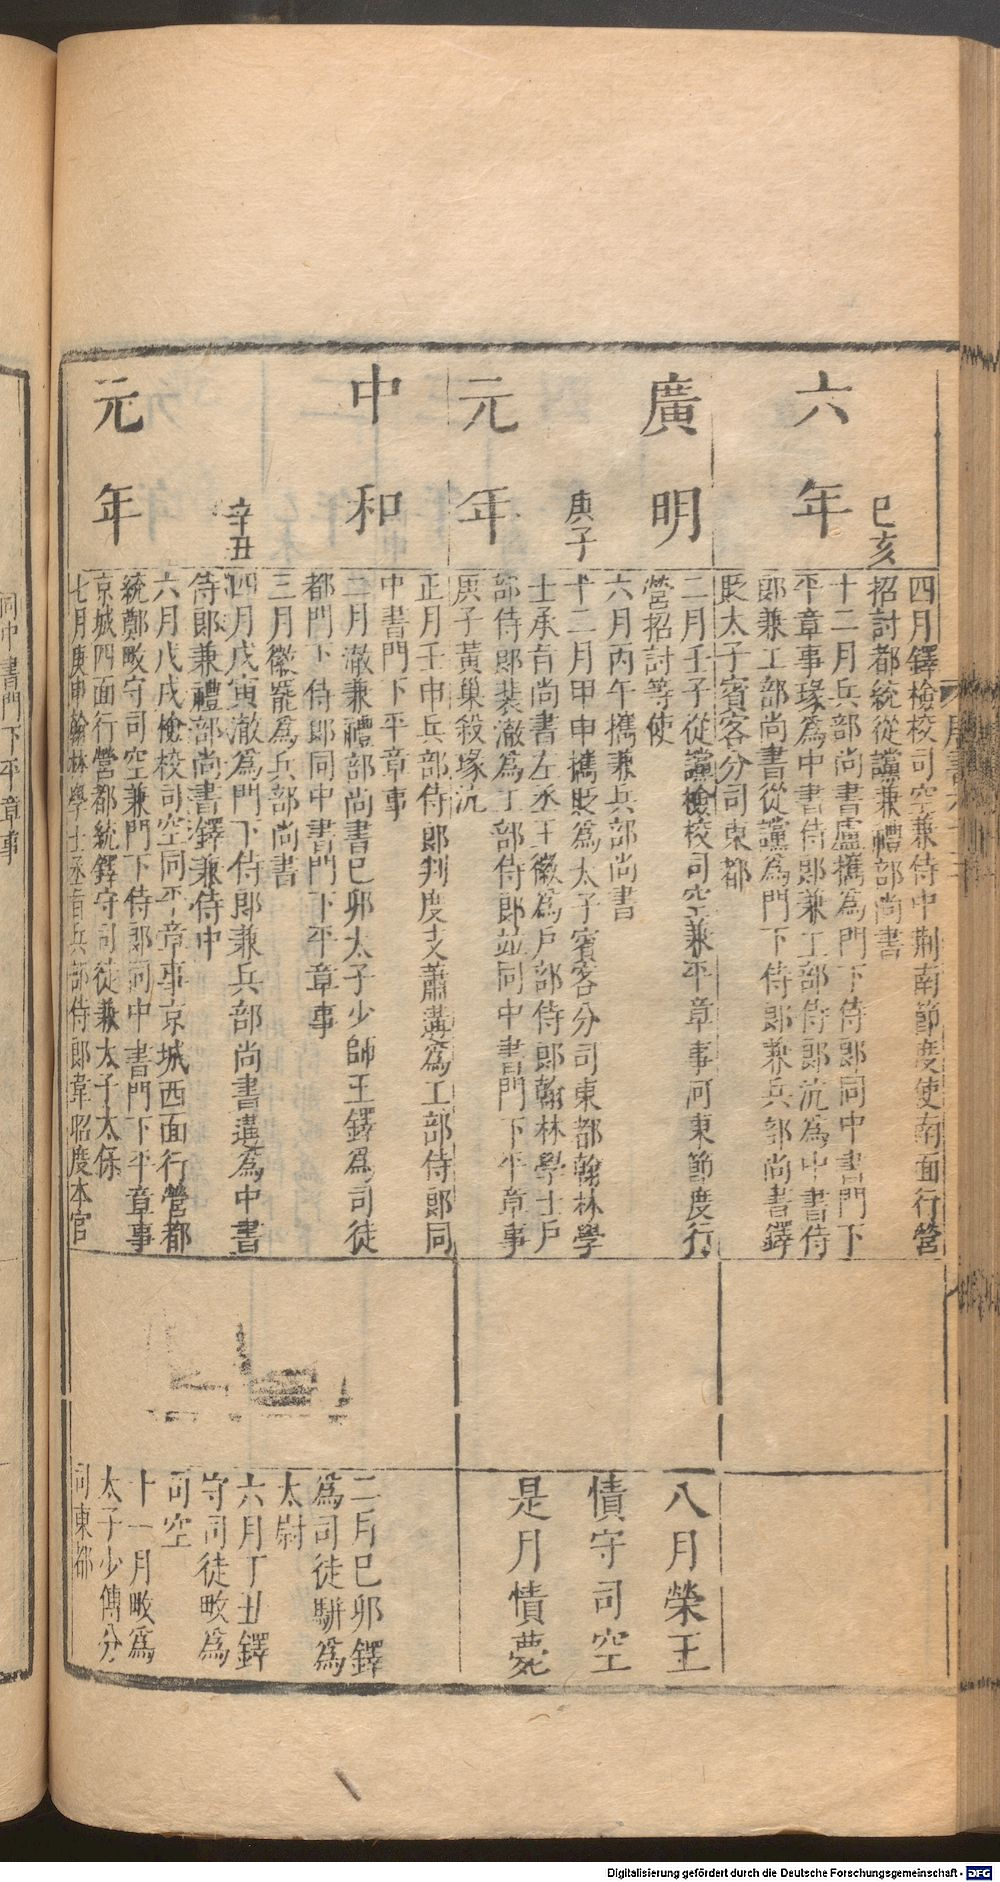 六年 己亥
四月鐸檢校司空兼侍中荆南節度使南面行營
招討都統從讜兼禮部尚書
十二月兵部尚書盧攜爲門下侍郎同中書門下
平章事瑑爲中書侍郎兼工部侍郎沆爲中書侍
郎兼工部尚書從讜爲門下侍郎兼兵部尚書鐸
貶太子賓客分司東都
廣明元年 庚子
二月壬子從讜檢校司空兼平章事河東節度行
營招討等使
六月丙午攜兼兵部尚書
十二月甲申攜貶爲太子賓客分司東都翰林學
士承旨尚書左丞王徽爲戶部侍郎翰林學士戶
部侍郎裴澈爲工部侍郎並同中書門下平章事
庚子黃巢殺瑑沆
八月榮王
憤守司空
是月憤薨
中和元年 辛丑
正月壬申兵部侍郎判度支蕭遘爲工部侍郎同
中書門下平章事
二月澈兼禮部尚書己卯太子少師王鐸爲司徒
都門下侍郎同中書門下平章事
三月徽罷爲兵部尚書
四月戊寅澈爲門下侍郎兼兵部尚書遘爲中書
侍郎兼禮部尚書鐸兼侍中
六月戊戌檢校司空同平章事京城西面行營都
統鄭畋守司空兼門下侍郎同中書門下平章事
京城四面行營都統鐸守司徒兼太子太保
七月庚申翰林學士丞旨兵部侍郎韋昭度本官
二月己卯鐸
爲司徒駢爲
太尉
六月丁丑鐸
守司徒畋爲
司空
十一月畋爲
太子少傅分
司東都
同中書門下平章事
Digitalisierung gefördert durch die Deutsche Forschungsgemeinschaft - DFG